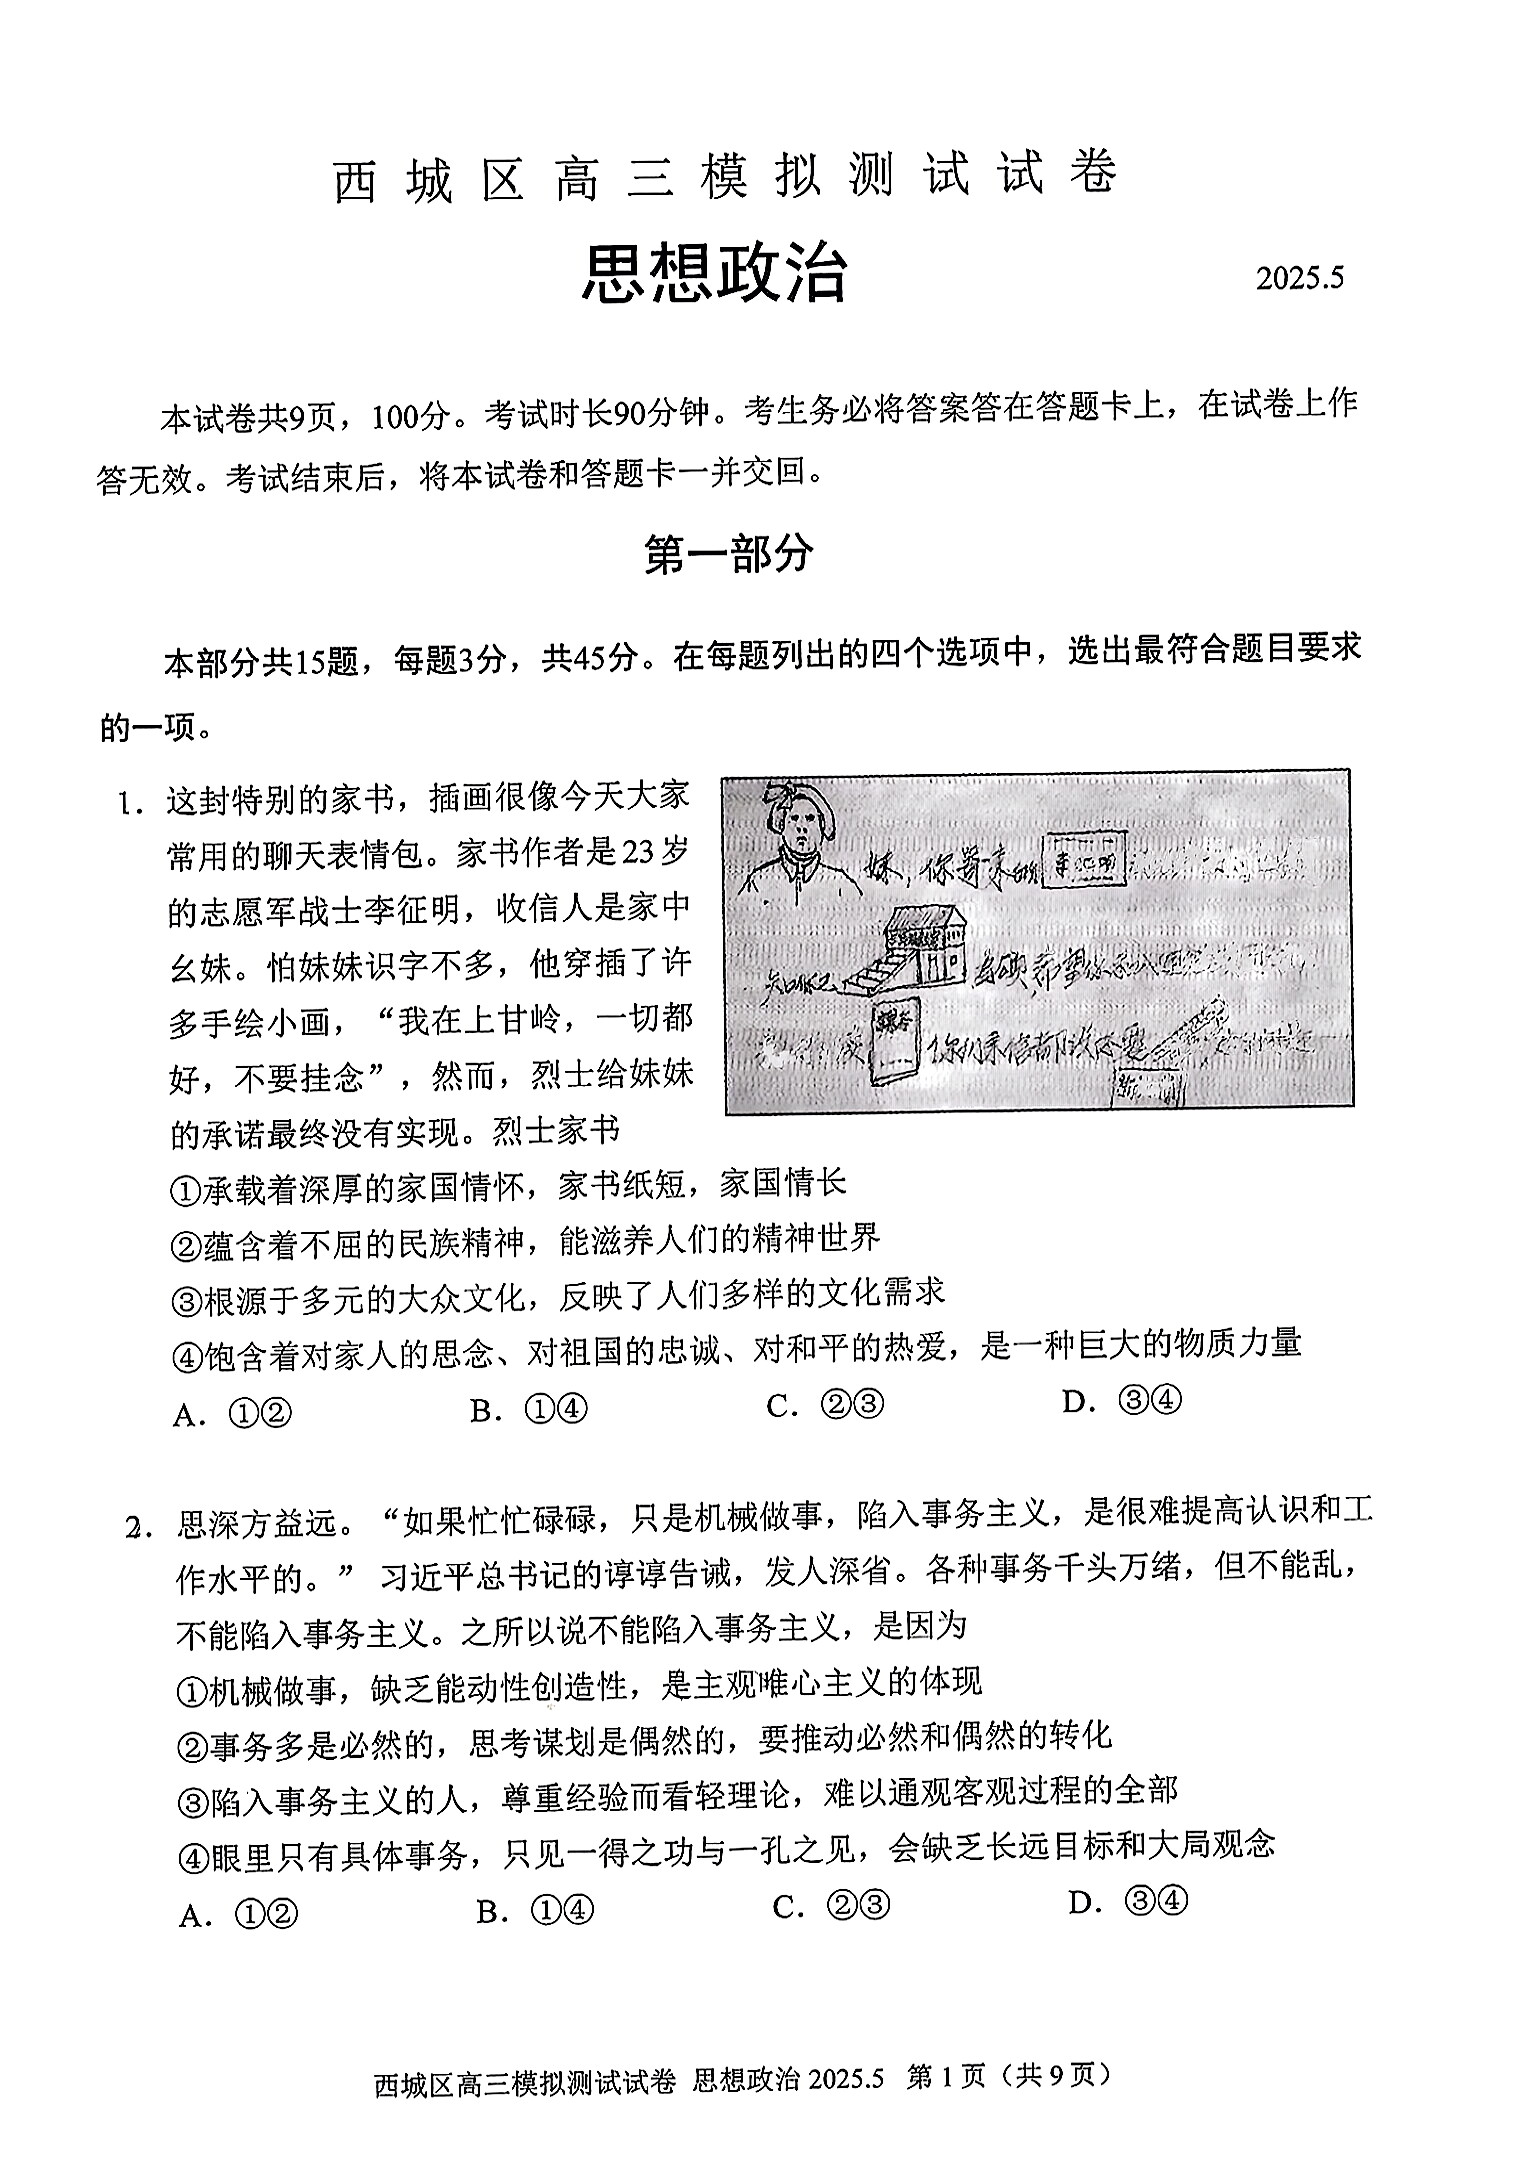 西城区高三模拟测试试卷
思想政治
2025.5
本试卷共9页，100分。考试时长90分钟。考生务必将答案答在答题卡上，在试卷上作
答无效。考试结束后，将本试卷和答题卡一并交回。
第一部分
本部分共15题，每题3分，共45分。在每题列出的四个选项中，选出最符合题目要求
的一项。
1. 这封特别的家书，插画很像今天大家
常用的聊天表情包。家书作者是23岁
的志愿军战士李征明，收信人是家中
幺妹。怕妹妹识字不多，他穿插了许
多手绘小画，“我在上甘岭，一切都
好，不要挂念”，然而，烈士给妹妹
的承诺最终没有实现。烈士家书
妹，你寄来的
你们来信都说还要
①承载着深厚的家国情怀，家书纸短，家国情长
②蕴含着不屈的民族精神，能滋养人们的精神世界
③根源于多元的大众文化，反映了人们多样的文化需求
④饱含着对家人的思念、对祖国的忠诚、对和平的热爱，是一种巨大的物质力量
A. ①② B. ①④ C. ②③ D. ③④
2. 思深方益远。“如果忙忙碌碌，只是机械做事，陷入事务主义，是很难提高认识和工
作水平的。” 习近平总书记的谆谆告诫，发人深省。各种事务千头万绪，但不能乱，
不能陷入事务主义。之所以说不能陷入事务主义，是因为
①机械做事，缺乏能动性创造性，是主观唯心主义的体现
②事务多是必然的，思考谋划是偶然的，要推动必然和偶然的转化
③陷入事务主义的人，尊重经验而看轻理论，难以通观客观过程的全部
④眼里只有具体事务，只见一得之功与一孔之见，会缺乏长远目标和大局观念
A. ①② B. ①④ C. ②③ D. ③④
西城区高三模拟测试试卷 思想政治 2025.5 第 1 页（共 9 页）